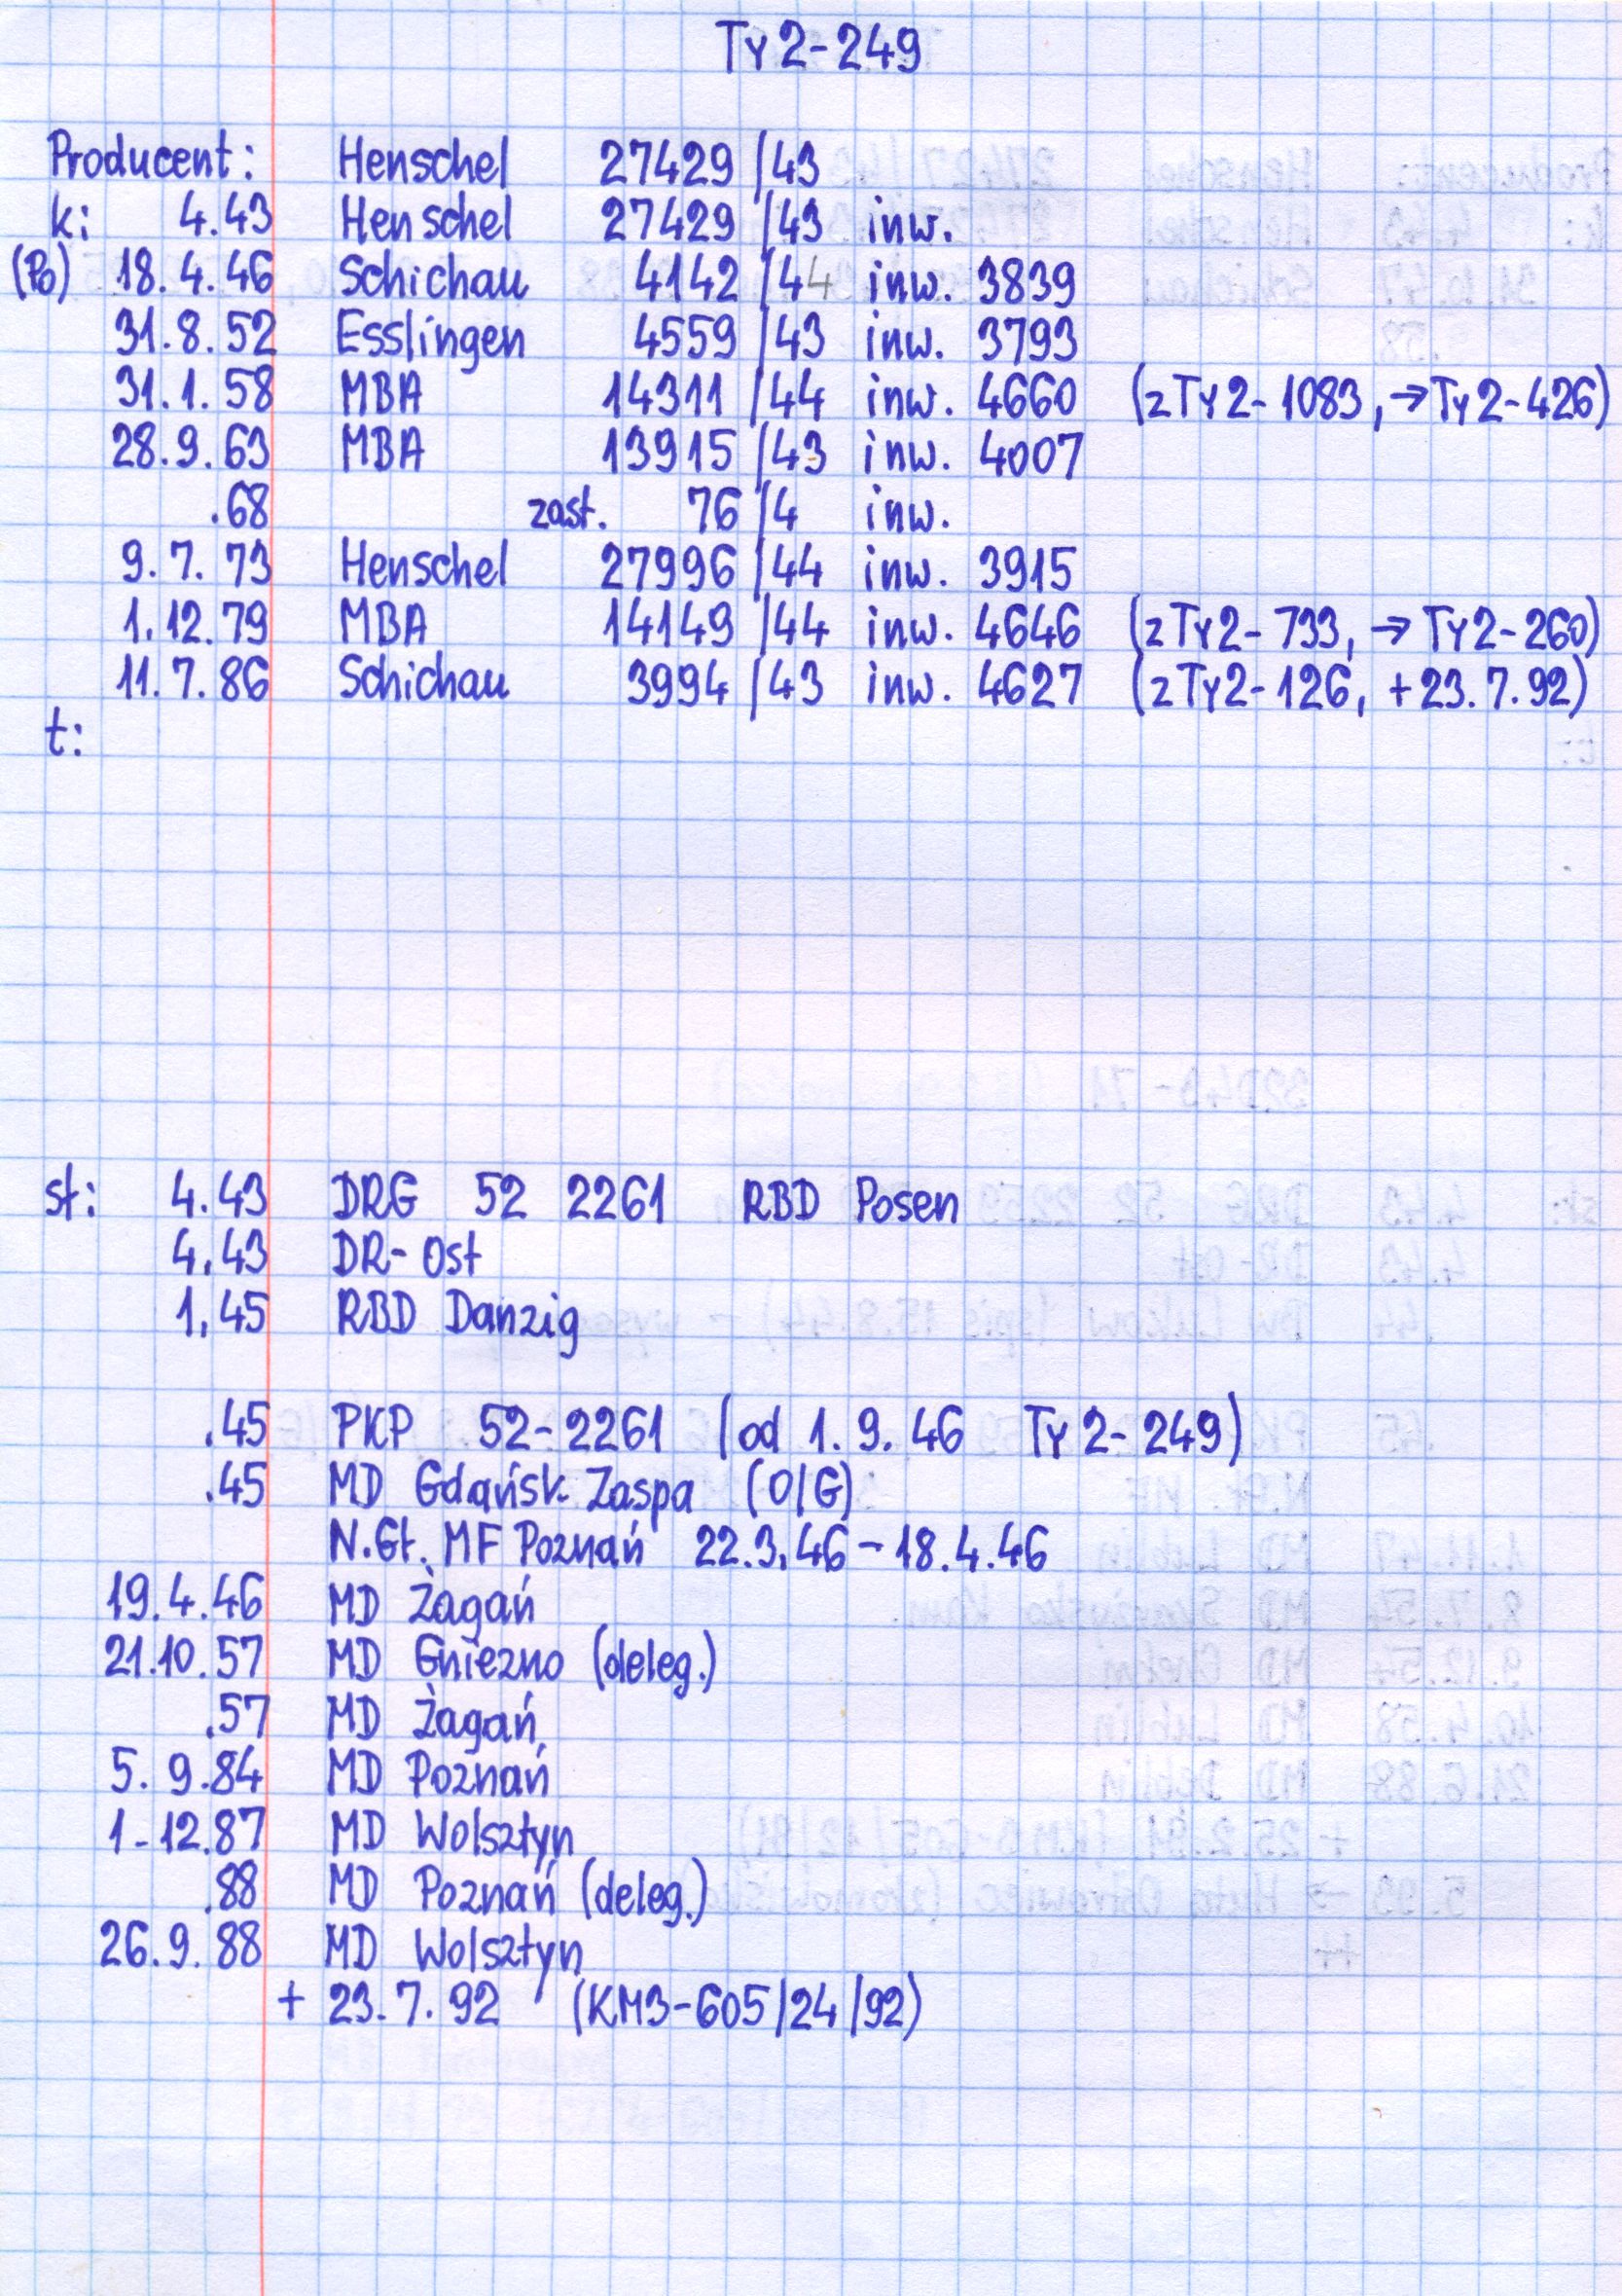 Ty2-249
Producent: Henschel 27429/43
k: 4.43 Henschel 27429/43 inw.
(Po) 18.4.46 Schichau 4142/44 inw. 3839
31.8.52 Esslingen 4559/43 inw. 3793
31.1.58 MBA 14311/44 inw. 4660 (z Ty2-1083, → Ty2-426)
28.9.63 MBA 13915/43 inw. 4007
.68 zast. 76/4 inw.
9.7.73 Henschel 27996/44 inw. 3915
1.12.79 MBA 14149/44 inw. 4646 (z Ty2-733, → Ty2-260)
11.7.86 Schichau 3994/43 inw. 4627 (z Ty2-126, +23.7.92)
t:
st: 4.43 DRG 52 2261 RBD Posen
4.43 DR-Ost
1.45 RBD Danzig
.45 PKP 52-2261 (od 1.9.46 Ty2-249)
.45 MD Gdańsk Zaspa (O/G)
N.Gł. MF Poznań 22.3.46-18.4.46
19.4.46 MD Żagań
21.10.57 MD Gniezno (deleg.)
.57 MD Żagań
5.9.84 MD Poznań
1-12.87 MD Wolsztyn
.88 MD Poznań (deleg.)
26.9.88 MD Wolsztyn
+ 23.7.92 (KM3-605/24/92)